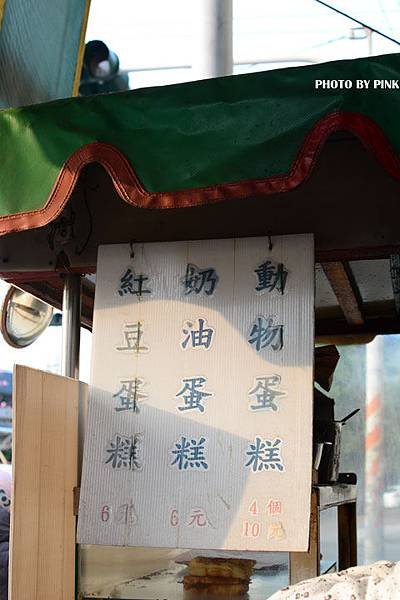 PHOTO BY PINK
動物蛋糕
4個
10元
奶油蛋糕
6元
紅豆蛋糕
6元